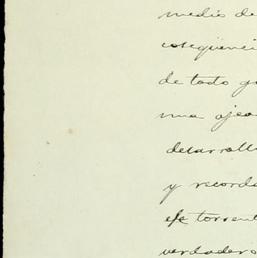 medio de
consequenci
de todo g
una ojea
desarroll
y recorda
ese torrent
verdadero